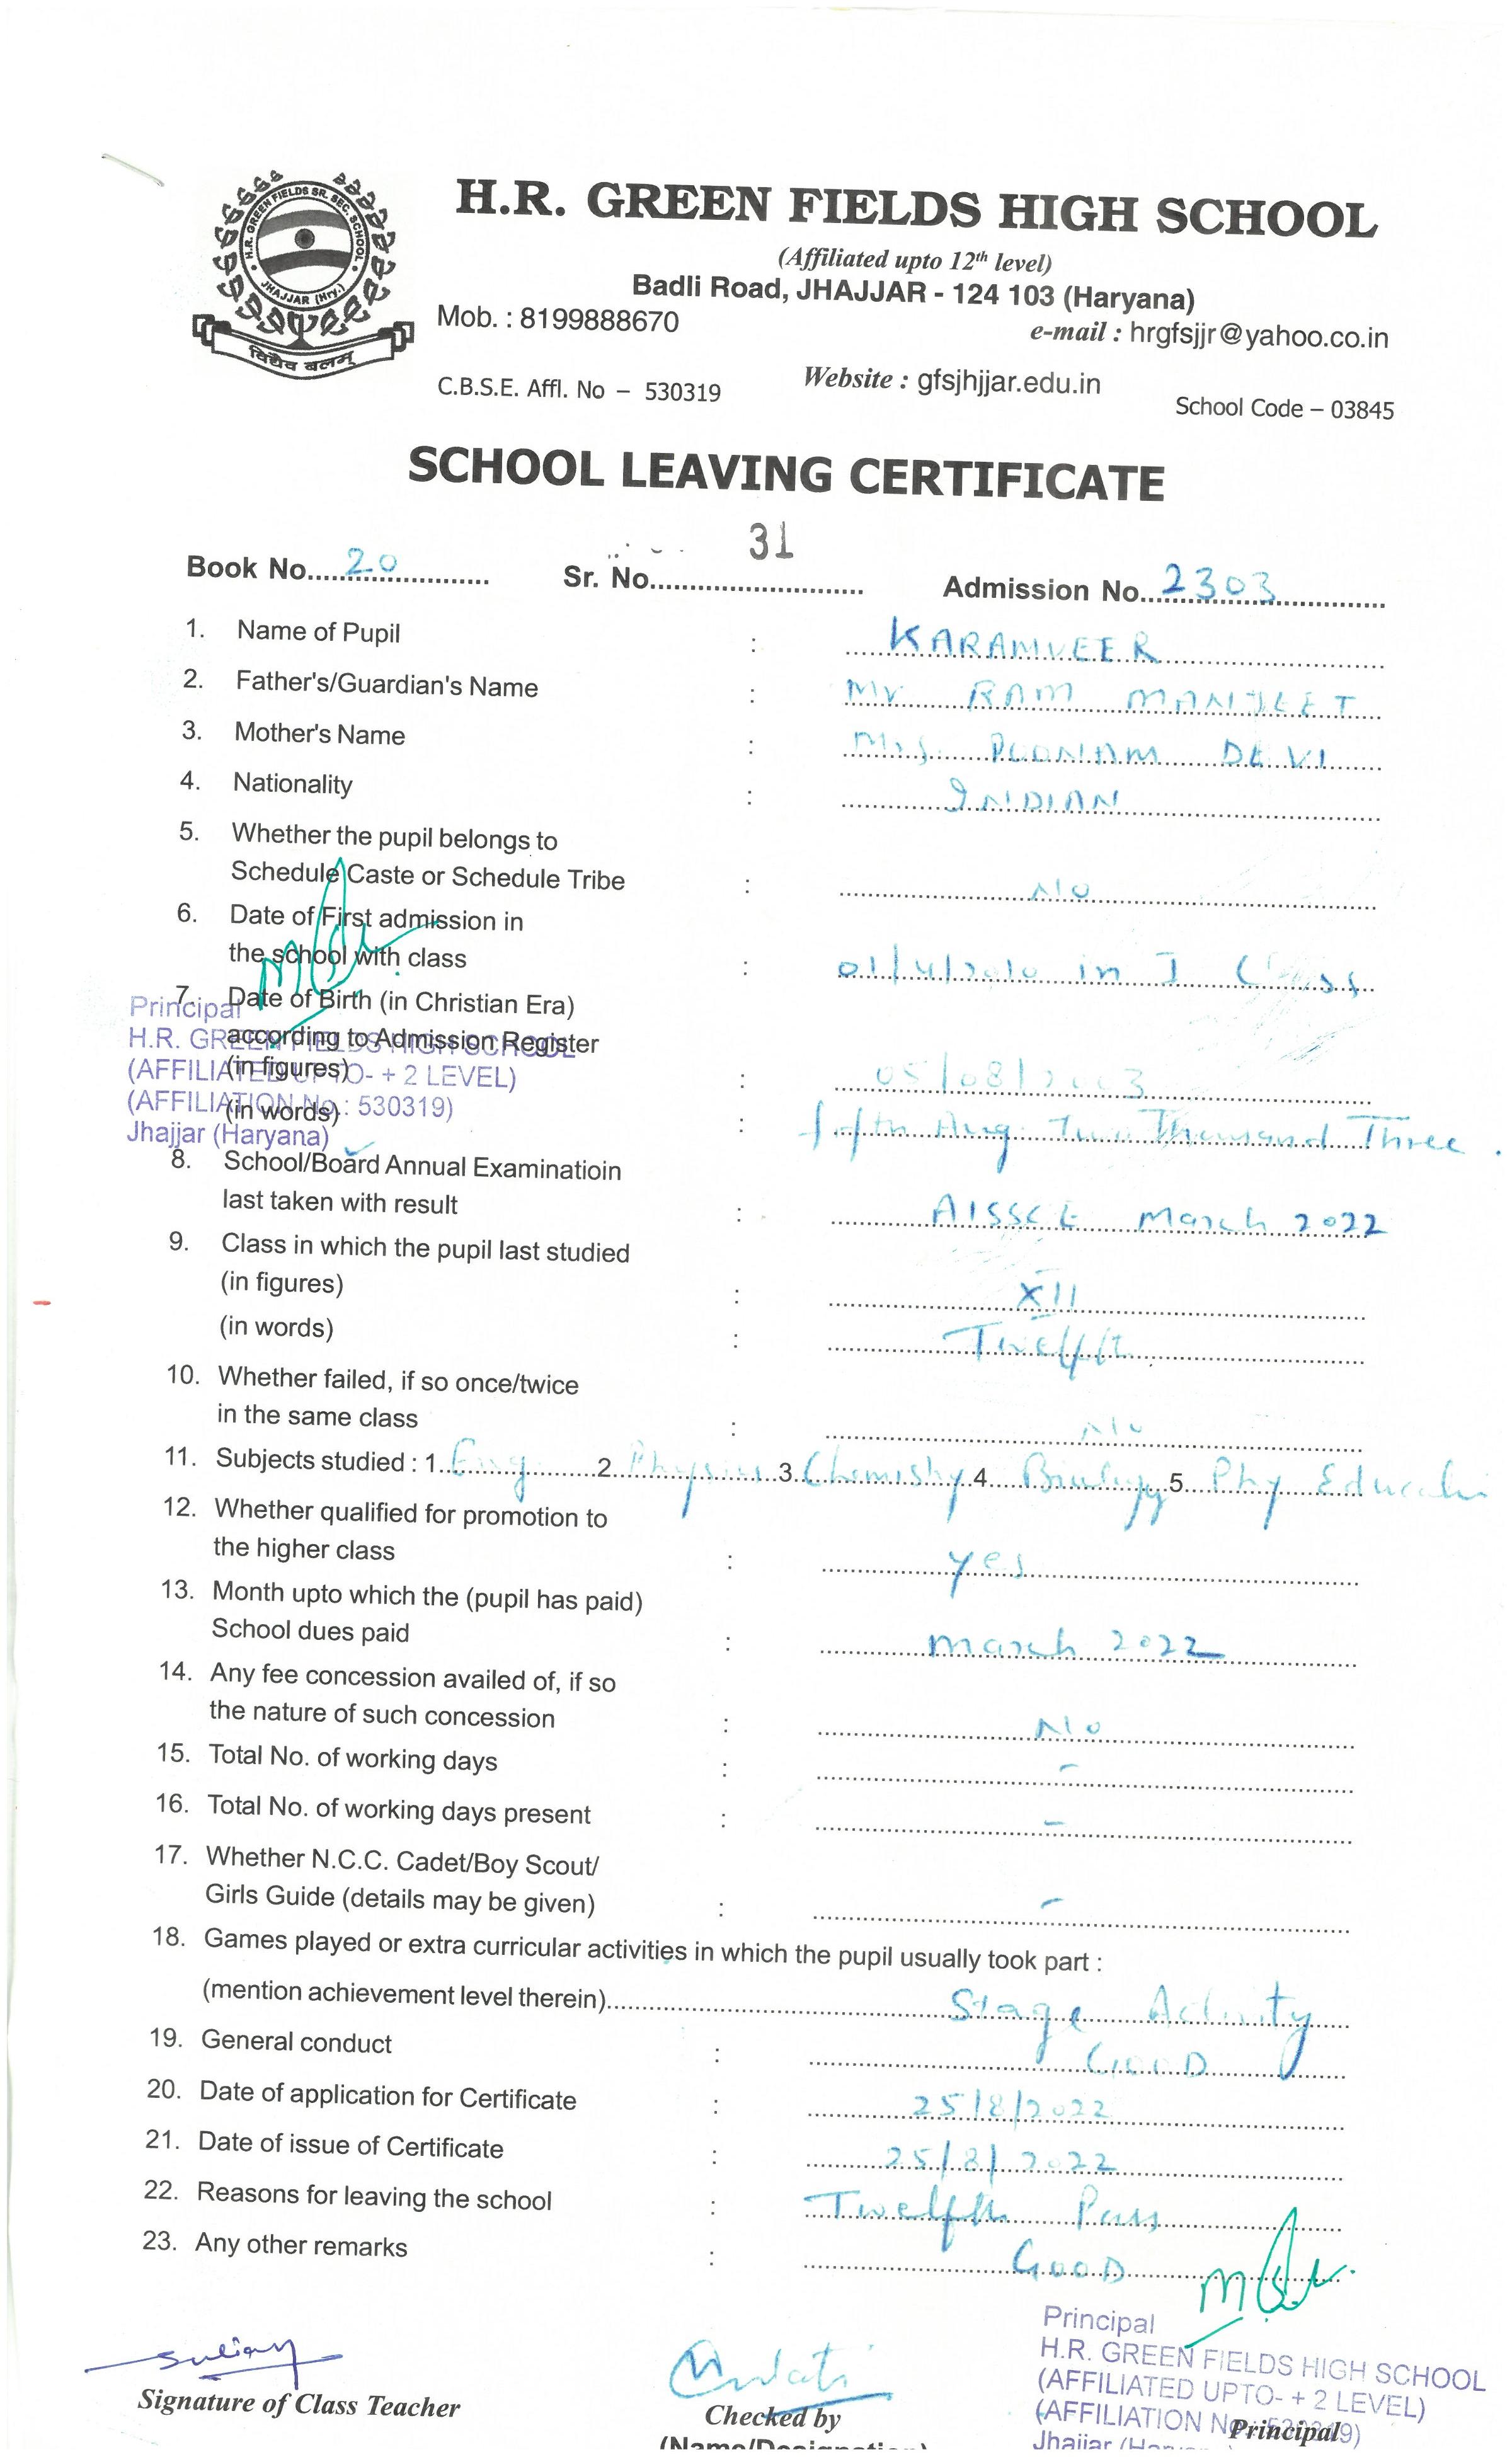 H.R. GREEN FIELDS SR. SEC. SCHOOL
JHAJJAR (Hry.)
विद्यैव बलम्
H.R. GREEN FIELDS HIGH SCHOOL
(Affiliated upto 12th level)
Badli Road, JHAJJAR - 124 103 (Haryana)
Mob. : 8199888670 e-mail : hrgfsjjr@yahoo.co.in
C.B.S.E. Affl. No – 530319 Website : gfsjhjjar.edu.in School Code – 03845
SCHOOL LEAVING CERTIFICATE
Book No. 20 Sr. No. 31 Admission No. 2303
1. Name of Pupil : KARAMVEER
2. Father's/Guardian's Name : Mr RAM MANJEET
3. Mother's Name : Mrs POONAM DEVI
4. Nationality : INDIAN
5. Whether the pupil belongs to
Schedule Caste or Schedule Tribe : No
6. Date of First admission in
the school with class : 01/4/2010 in I Class
7. Date of Birth (in Christian Era)
according to Admission Register
(in figures) : 05/08/2003
(in words) : fifth Aug. Two Thousand Three.
Principal
H.R. GREEN FIELDS HIGH SCHOOL
(AFFILIATED UPTO- + 2 LEVEL)
(AFFILIATION No.: 530319)
Jhajjar (Haryana)
8. School/Board Annual Examinatioin
last taken with result : AISSCE March 2022
9. Class in which the pupil last studied
(in figures) : XII
(in words) : Twelfth
10. Whether failed, if so once/twice
in the same class : No
11. Subjects studied : 1. Eng 2. Physics 3. Chemistry 4. Biology 5. Phy Educati
12. Whether qualified for promotion to
the higher class : yes
13. Month upto which the (pupil has paid)
School dues paid : March 2022
14. Any fee concession availed of, if so
the nature of such concession : No
15. Total No. of working days : -
16. Total No. of working days present : -
17. Whether N.C.C. Cadet/Boy Scout/
Girls Guide (details may be given) : -
18. Games played or extra curricular activities in which the pupil usually took part :
(mention achievement level therein) Stage Activity
19. General conduct : GOOD
20. Date of application for Certificate : 25/8/2022
21. Date of issue of Certificate : 25/8/2022
22. Reasons for leaving the school : Twelfth Pass
23. Any other remarks : GOOD
Signature of Class Teacher
Checked by
(Name/Designation)
Principal
H.R. GREEN FIELDS HIGH SCHOOL
(AFFILIATED UPTO- + 2 LEVEL)
(AFFILIATION No.: 530319)
Principal